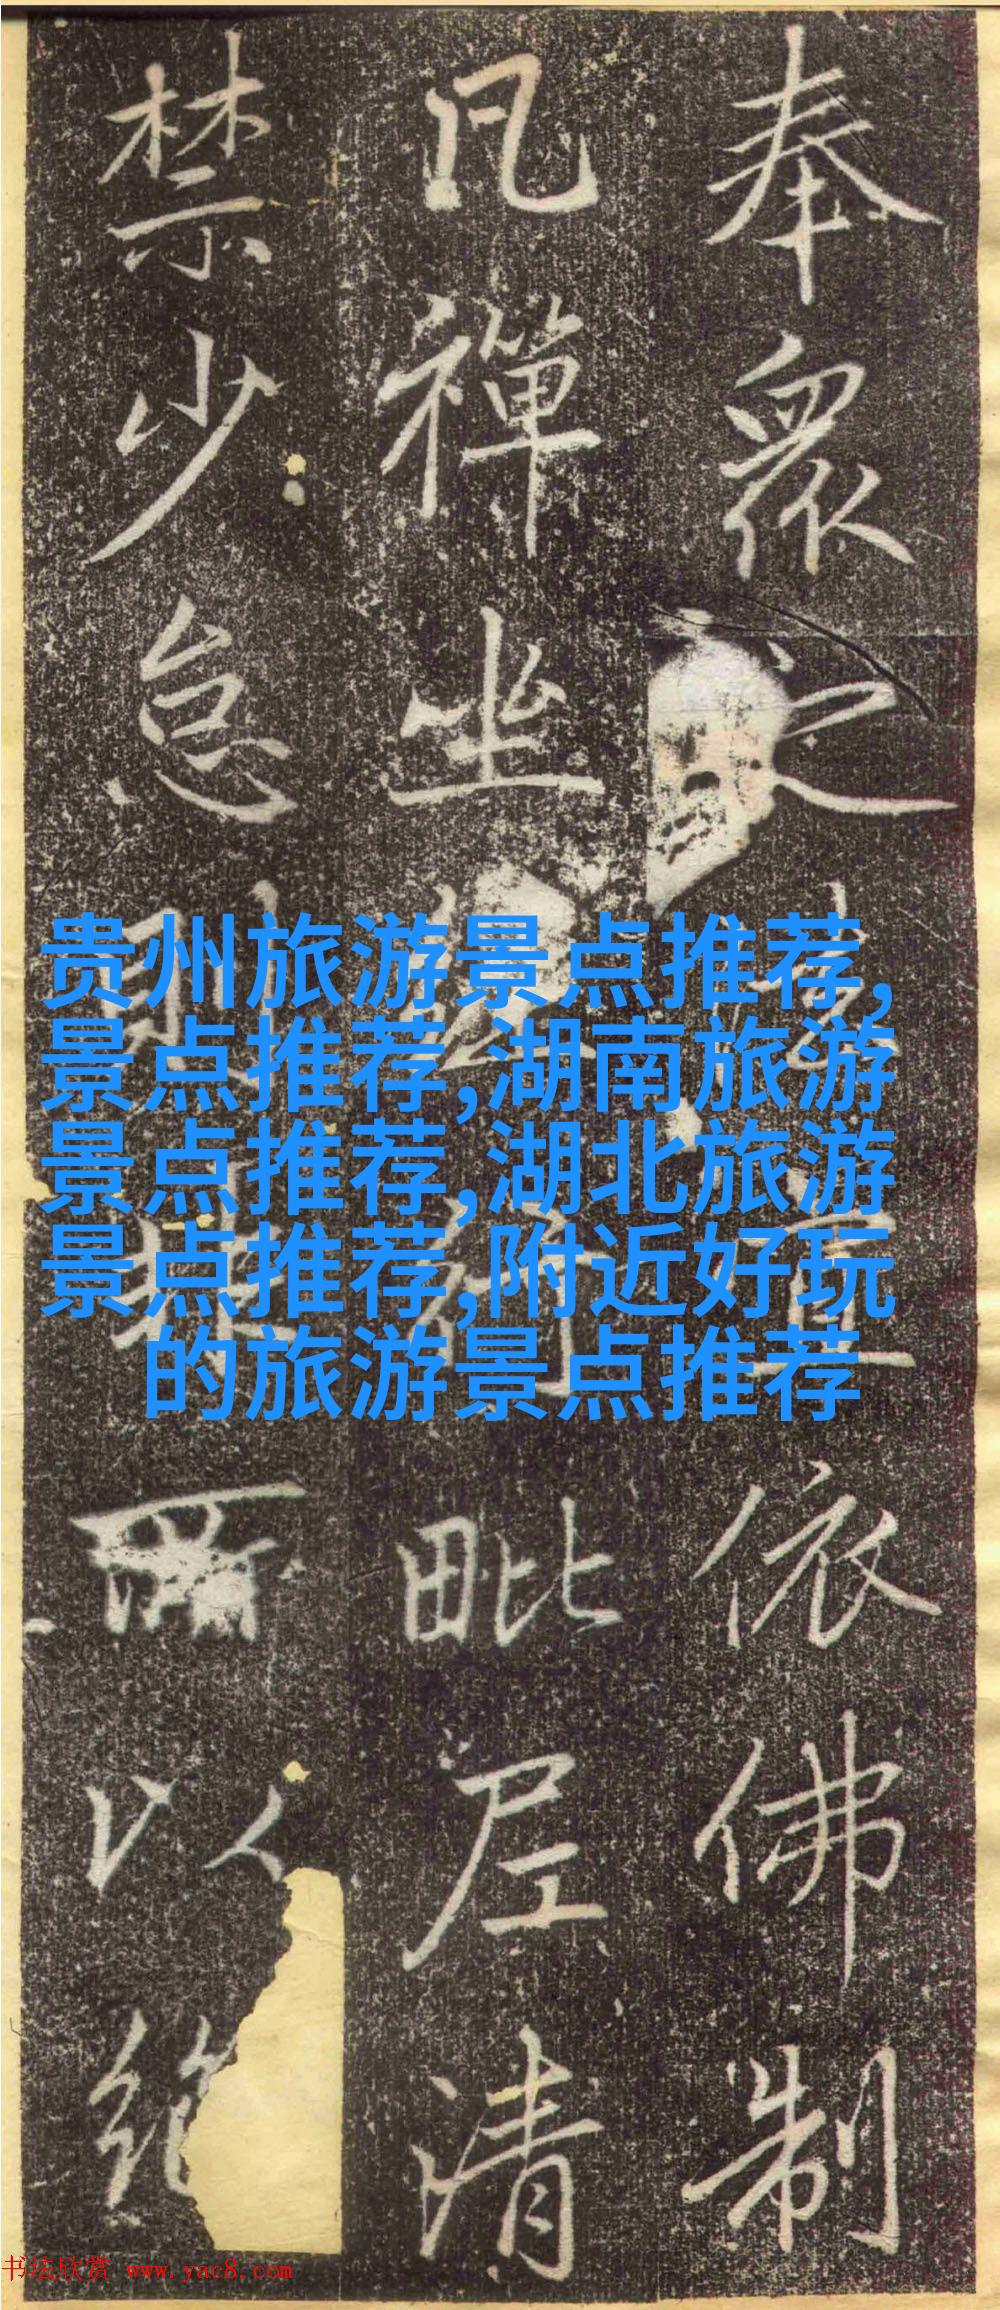 奉眾依佛制
凡禪坐毗尼清
禁少怠以
贵州旅游景点推荐,
景点推荐,湖南旅游
景点推荐,湖北旅游
景点推荐,附近好玩
的旅游景点推荐
书法欣赏 www.yac8.com